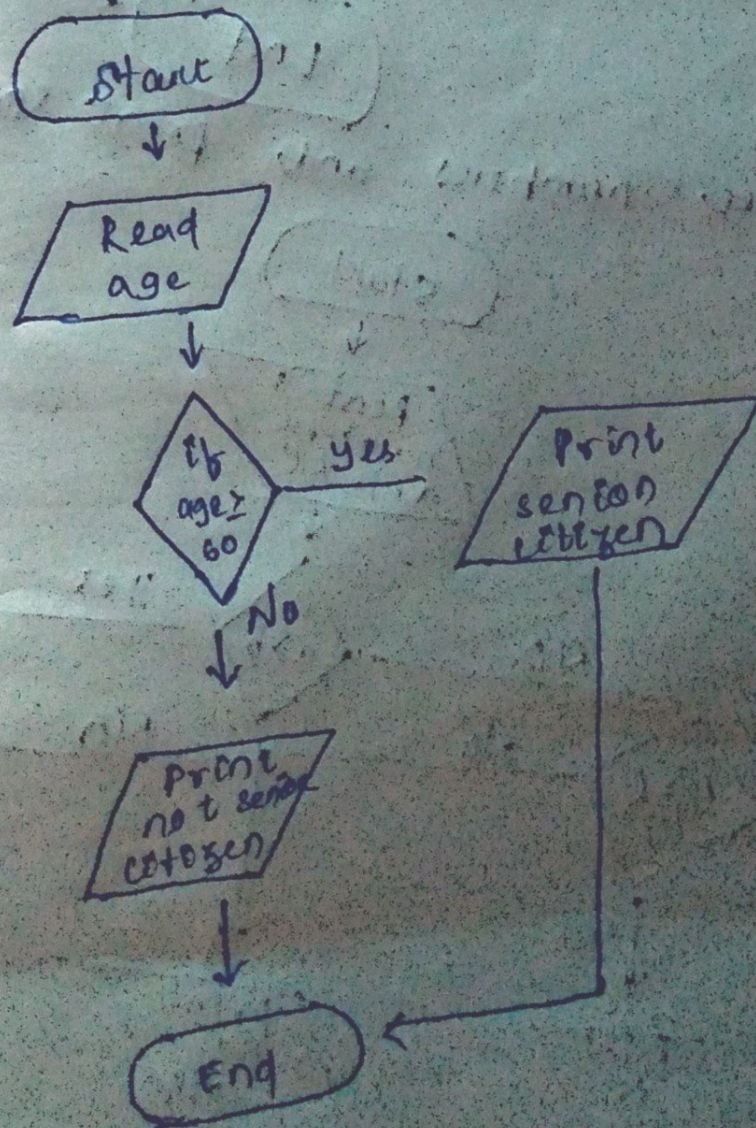 Start
Read
age
if
age ≥
60
yes
Print
senior
citizen
No
Print
not senior
citozen
End